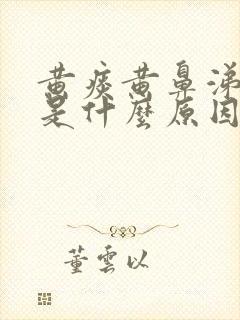 黄痰黄鼻涕
是什麼原因
董雲以